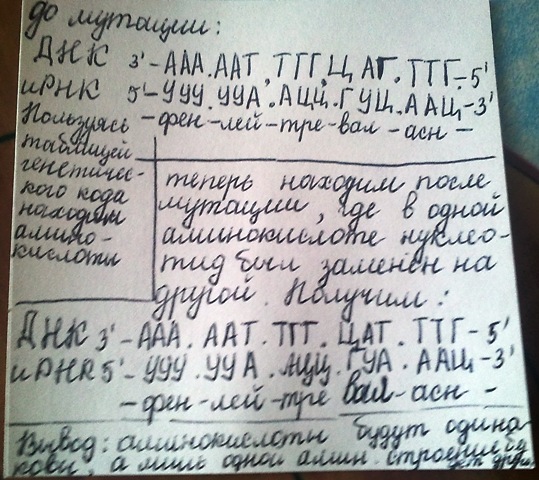 до мутации:
ДНК 3'-ААА.ААТ.ТТГ.ЦАГ.ТТГ-5'
иРНК 5'-УУУ.УУА.АЦЦ.ГУЦ.ААЦ-3'
-фен-лей-тре-вал-асн-
Пользуясь
таблицей
генетичес-
кого кода
находим
амино-
кислоты
теперь находим после
мутации, где в одной
аминокислоте нуклео-
тид был заменен на
другой. Получим:
ДНК 3'-ААА.ААТ.ТГГ.ЦАТ.ТТГ-5'
иРНК 5'-УУУ.УУА.АЦЦ.ГУА.ААЦ-3'
-фен-лей-тре вал-асн-
Вывод: аминокислоты будут одина
ковы, а лишь одной амин. строение бу
дет друг.